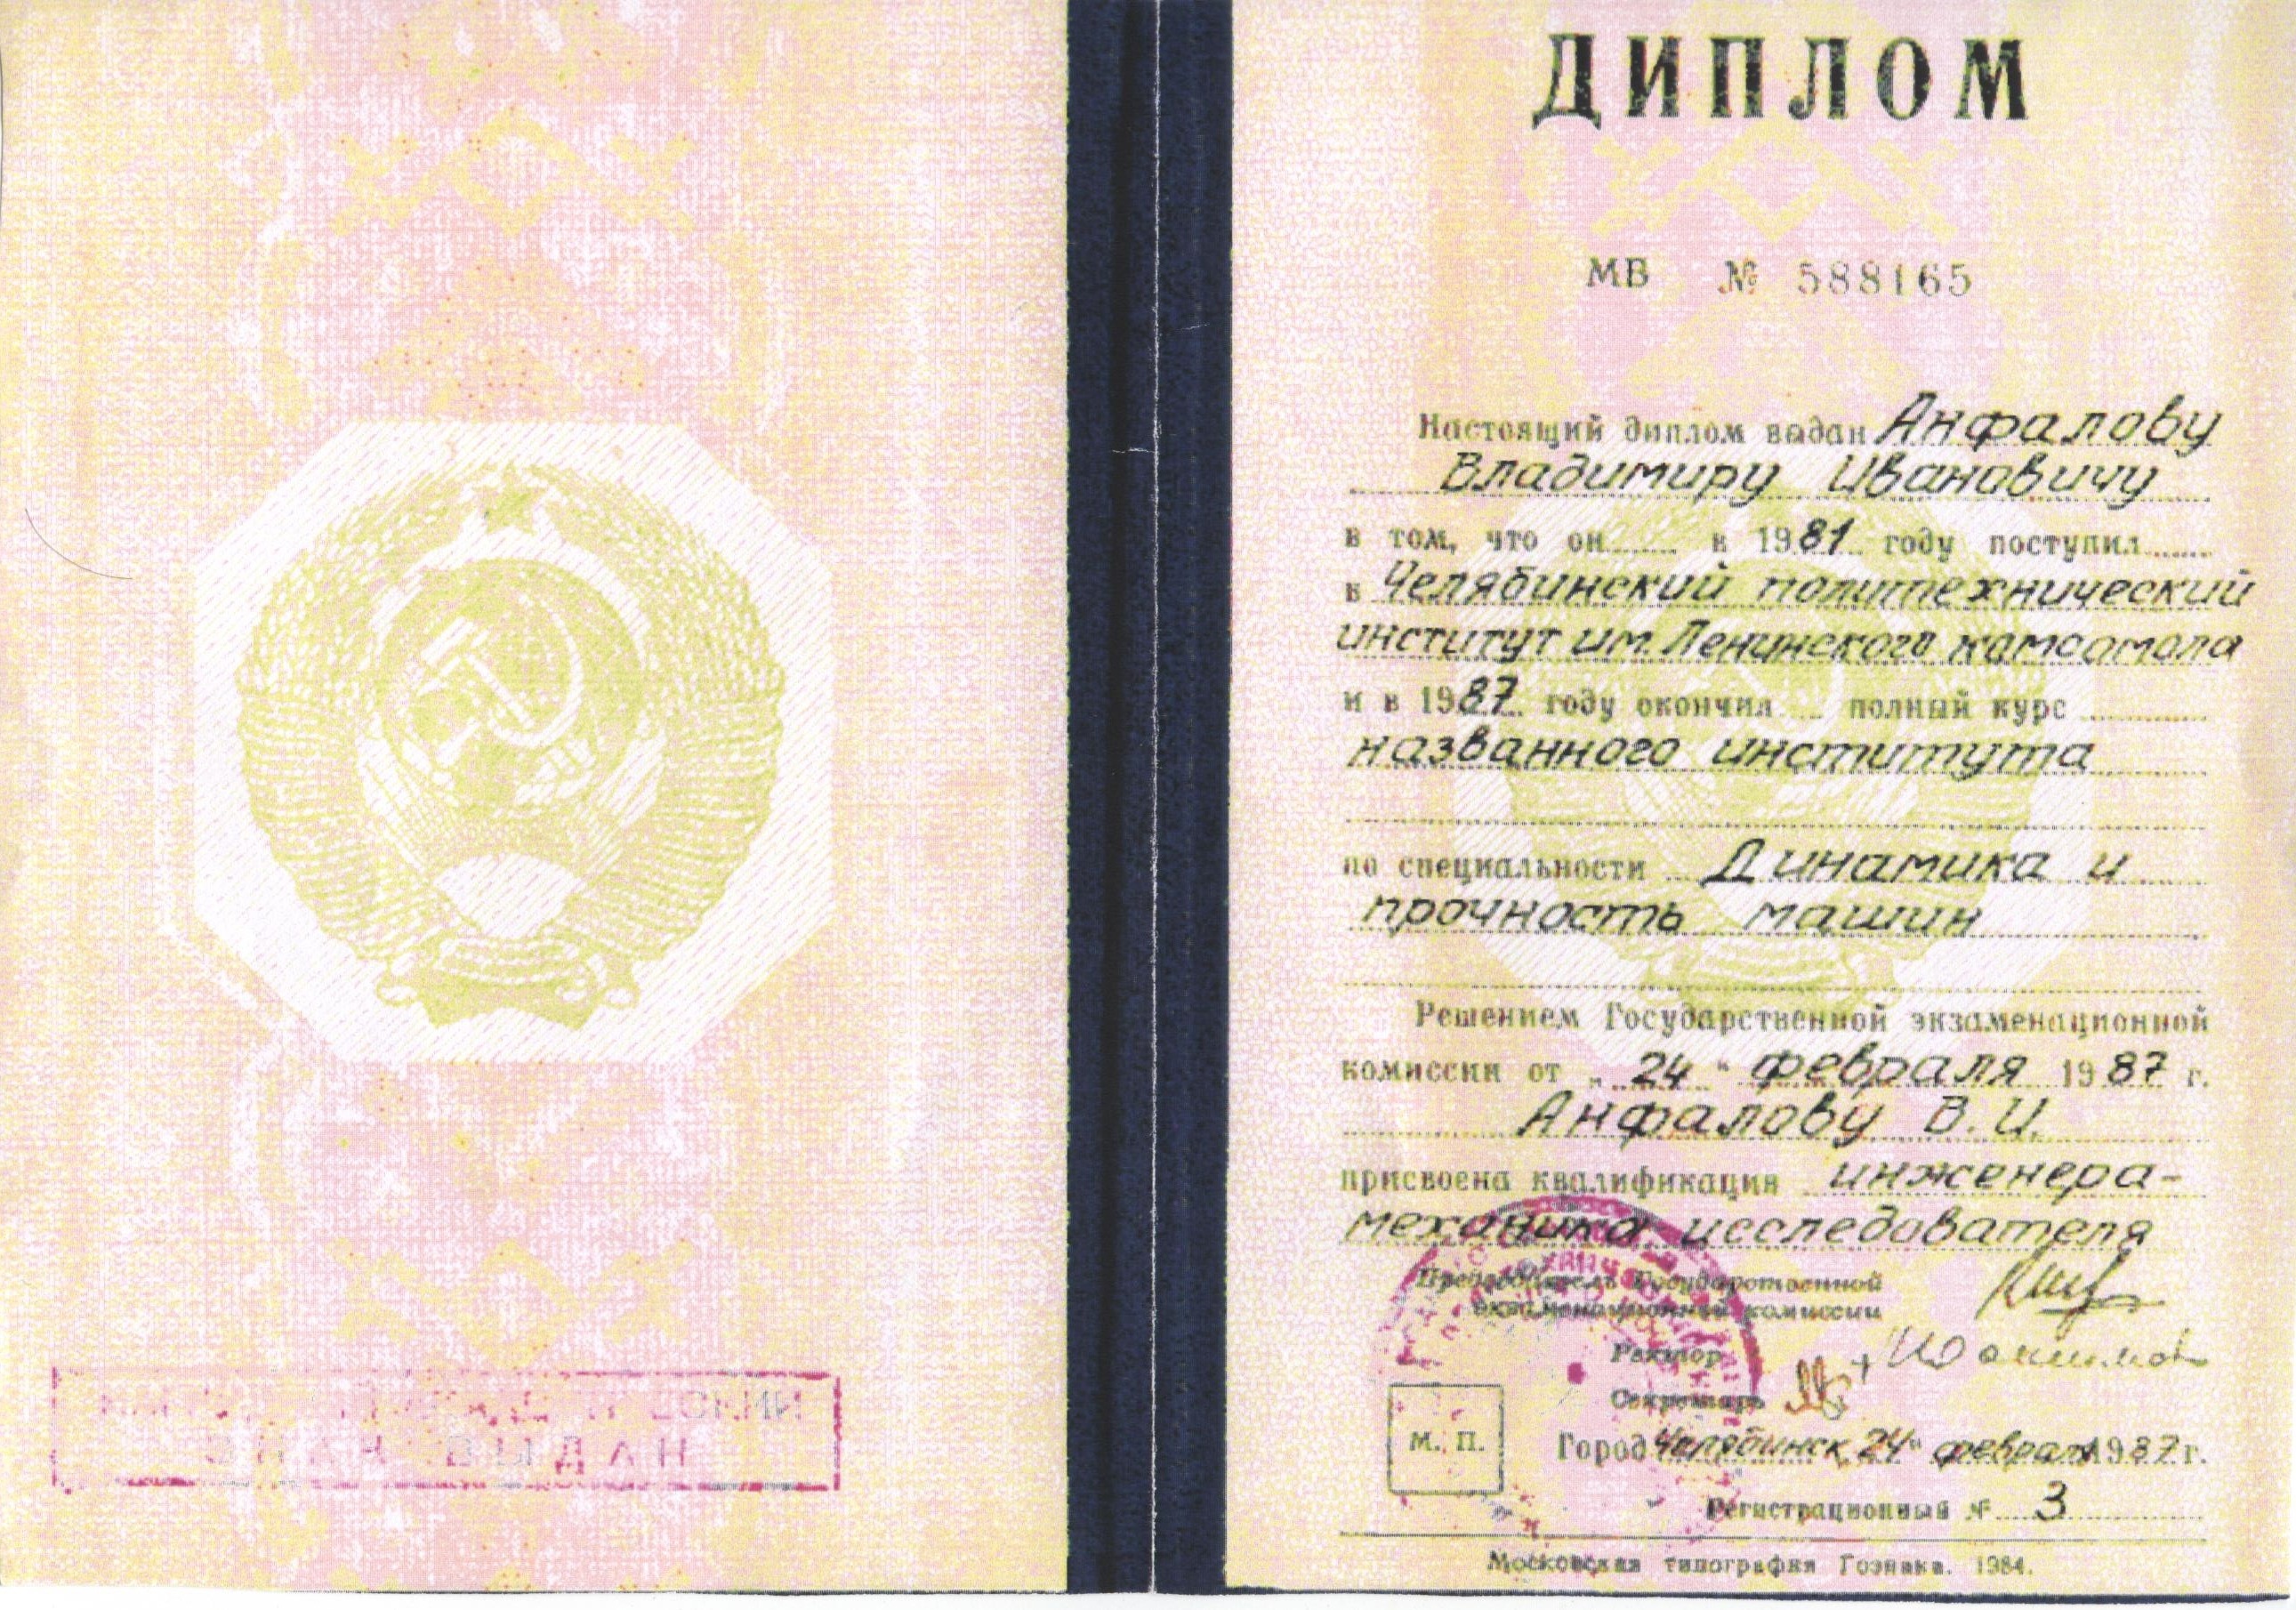 ДИПЛОМ
МВ № 588165
Настоящий диплом выдан Анфалову
Владимиру Ивановичу
в том, что он в 1981 году поступил
в Челябинский политехнический
институт им. Ленинского комсомола
и в 1987 году окончил полный курс
названного института
по специальности Динамика и
прочность машин
Решением Государственной экзаменационной
комиссии от „24" февраля 1987 г.
Анфалову В.И.
присвоена квалификация инженера-
механика исследователя
Председатель Государственной
экзаменационной комиссии
Ректор
Секретарь
М. П.
Город Челябинск 24" февраля 1987 г.
Регистрационный № 3
Московская типография Гознака. 1984.
ВЫДАН